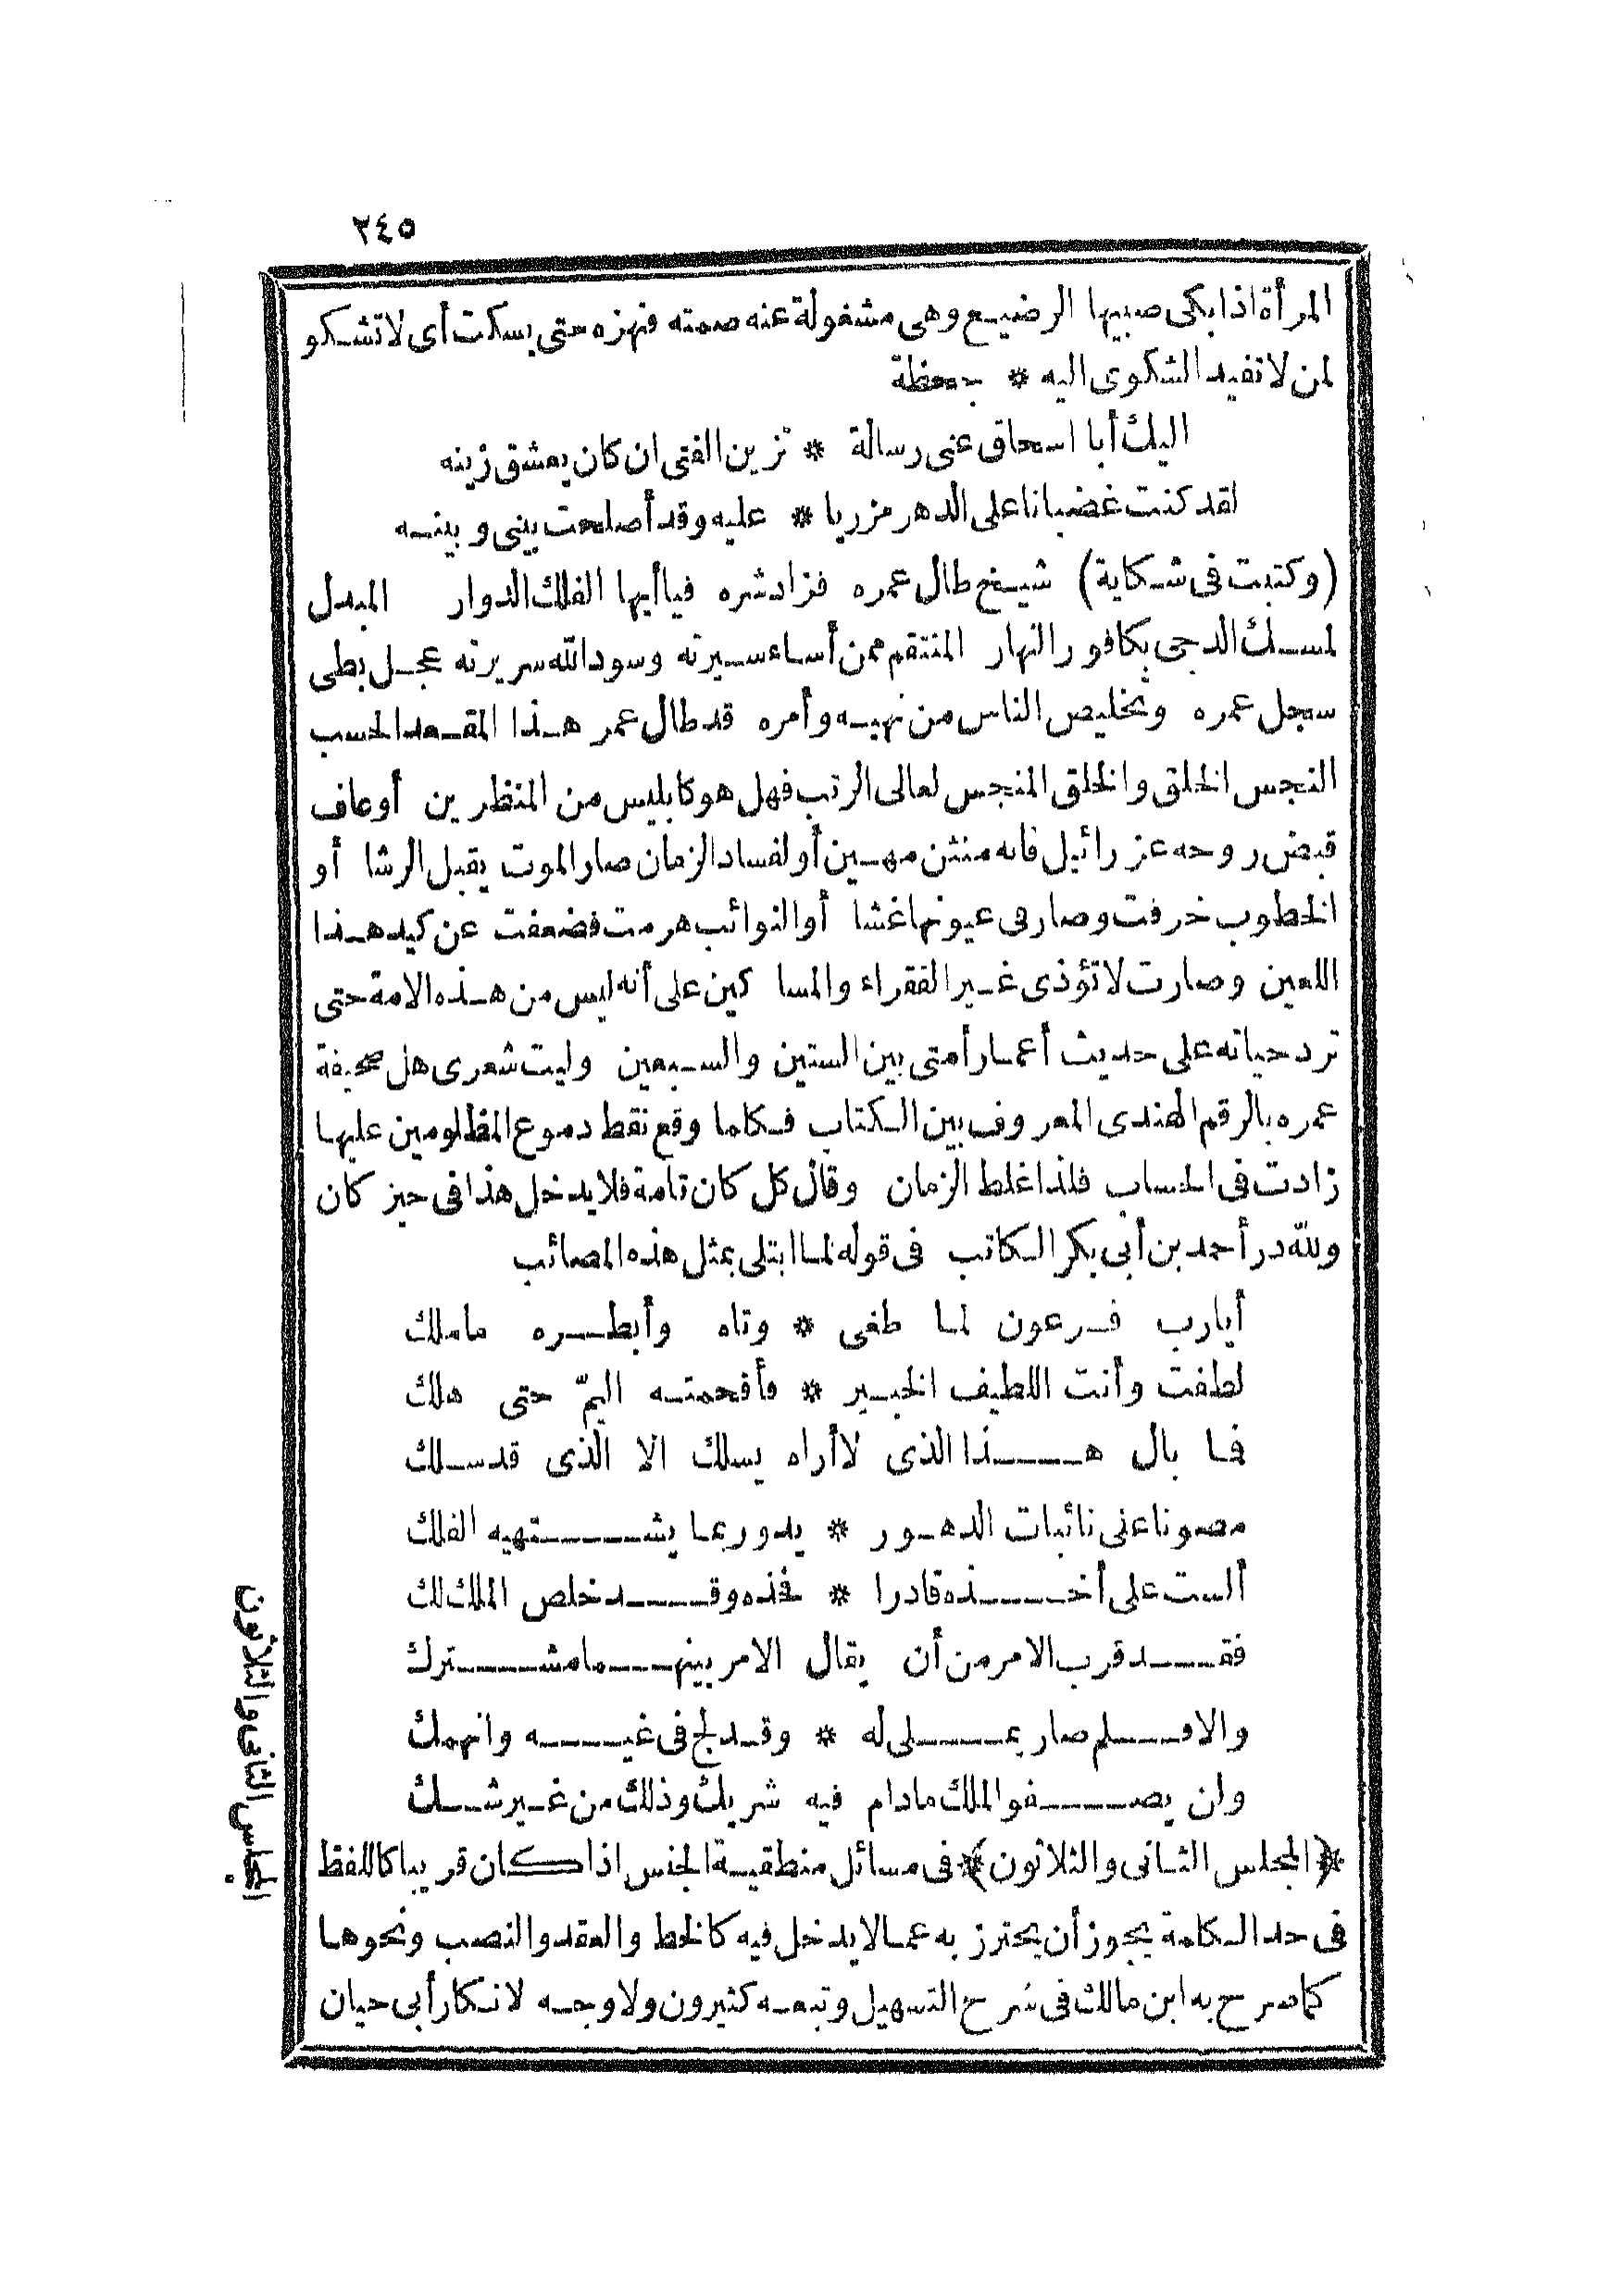 ٢٤٥
المرأة اذا بكى صبيها الرضيع وهى مشغولة عنه صمته فتهزه حتى يسكت أى لا تشكو
لمن لا تفيد الشكوى اليه * جحظة
اليك أبا اسحاق عنى رسالة * تزين الفتى ان كان يعشق زينه
لقد كنت غضبانا على الدهر مزريا * عليه وقد أصلحت بينى وبينه
(وكتبت فى شكاية) شيخ طال عمره فزاد شره فياأيها الفلك الدوار المبدل
لمسك الدجى بكافور النهار المنتقم ممن أساء سيرته وسود الله سريرته عجل بطى
سجل عمره وتخليص الناس من نهيه وأمره قد طال عمر هذا المقعد الحسب
النجس الخلق والخلق المنجس لعالى الرتب فهل هو كابليس من المنظرين أو عاف
قبض روحه عزرائيل فانه منتن مهين أو لفساد الزمان صار الموت يقبل الرشا أو
الخطوب خرفت وصار فى عيونها غشا أو النوائب هرمت فضعفت عن كيد هذا
اللعين وصارت لا تؤذى غير الفقراء والمساكين على أنه ليس من هذه الامة حتى
ترد حياته على حديث أعمار أمتى بين الستين والسبعين وليت شعرى هل صحيفة
عمره بالرقم الهندى المعروف بين الكتاب فكلما وقع نقط دموع المظلومين عليها
زادت فى الحساب فلذا غلط الزمان وقال كل كان تامة فلا يدخل هذا فى حيز كان
ولله در أحمد بن أبى بكر الكاتب فى قوله لما ابتلى بمثل هذه المصائب
أيارب فرعون لما طغى * وتاه وأبطره ما ملك
لطفت وأنت اللطيف الخبير * فأقحمته اليمّ حتى هلك
فما بال هذا الذى لا أراه يسلك الا الذى قد سلك
مصونا على نائبات الدهور * يدور بما يشتهيه الفلك
ألست على أخذه قادرا * فخذه وقد خلص الملك لك
فقد قرب الامر من أن يقال الامر بينهما مشترك
والا فلم صار يملى له * وقد لج فى غيه وانهمك
وان يصفو الملك مادام فيه شريك وذلك من غير شك
﴿المجلس الثانى والثلاثون﴾ فى مسائل منطقية الجنس اذا كان قريبا كاللفظ
فى حد الكلمة يجوز أن يحترز به عما لا يدخل فيه كالخط والعقد والنصب ونحوها
كما صرح به ابن مالك فى شرح التسهيل وتبعه كثيرون ولا وجه لانكار أبى حيان
المجلس الثانى والثلاثون